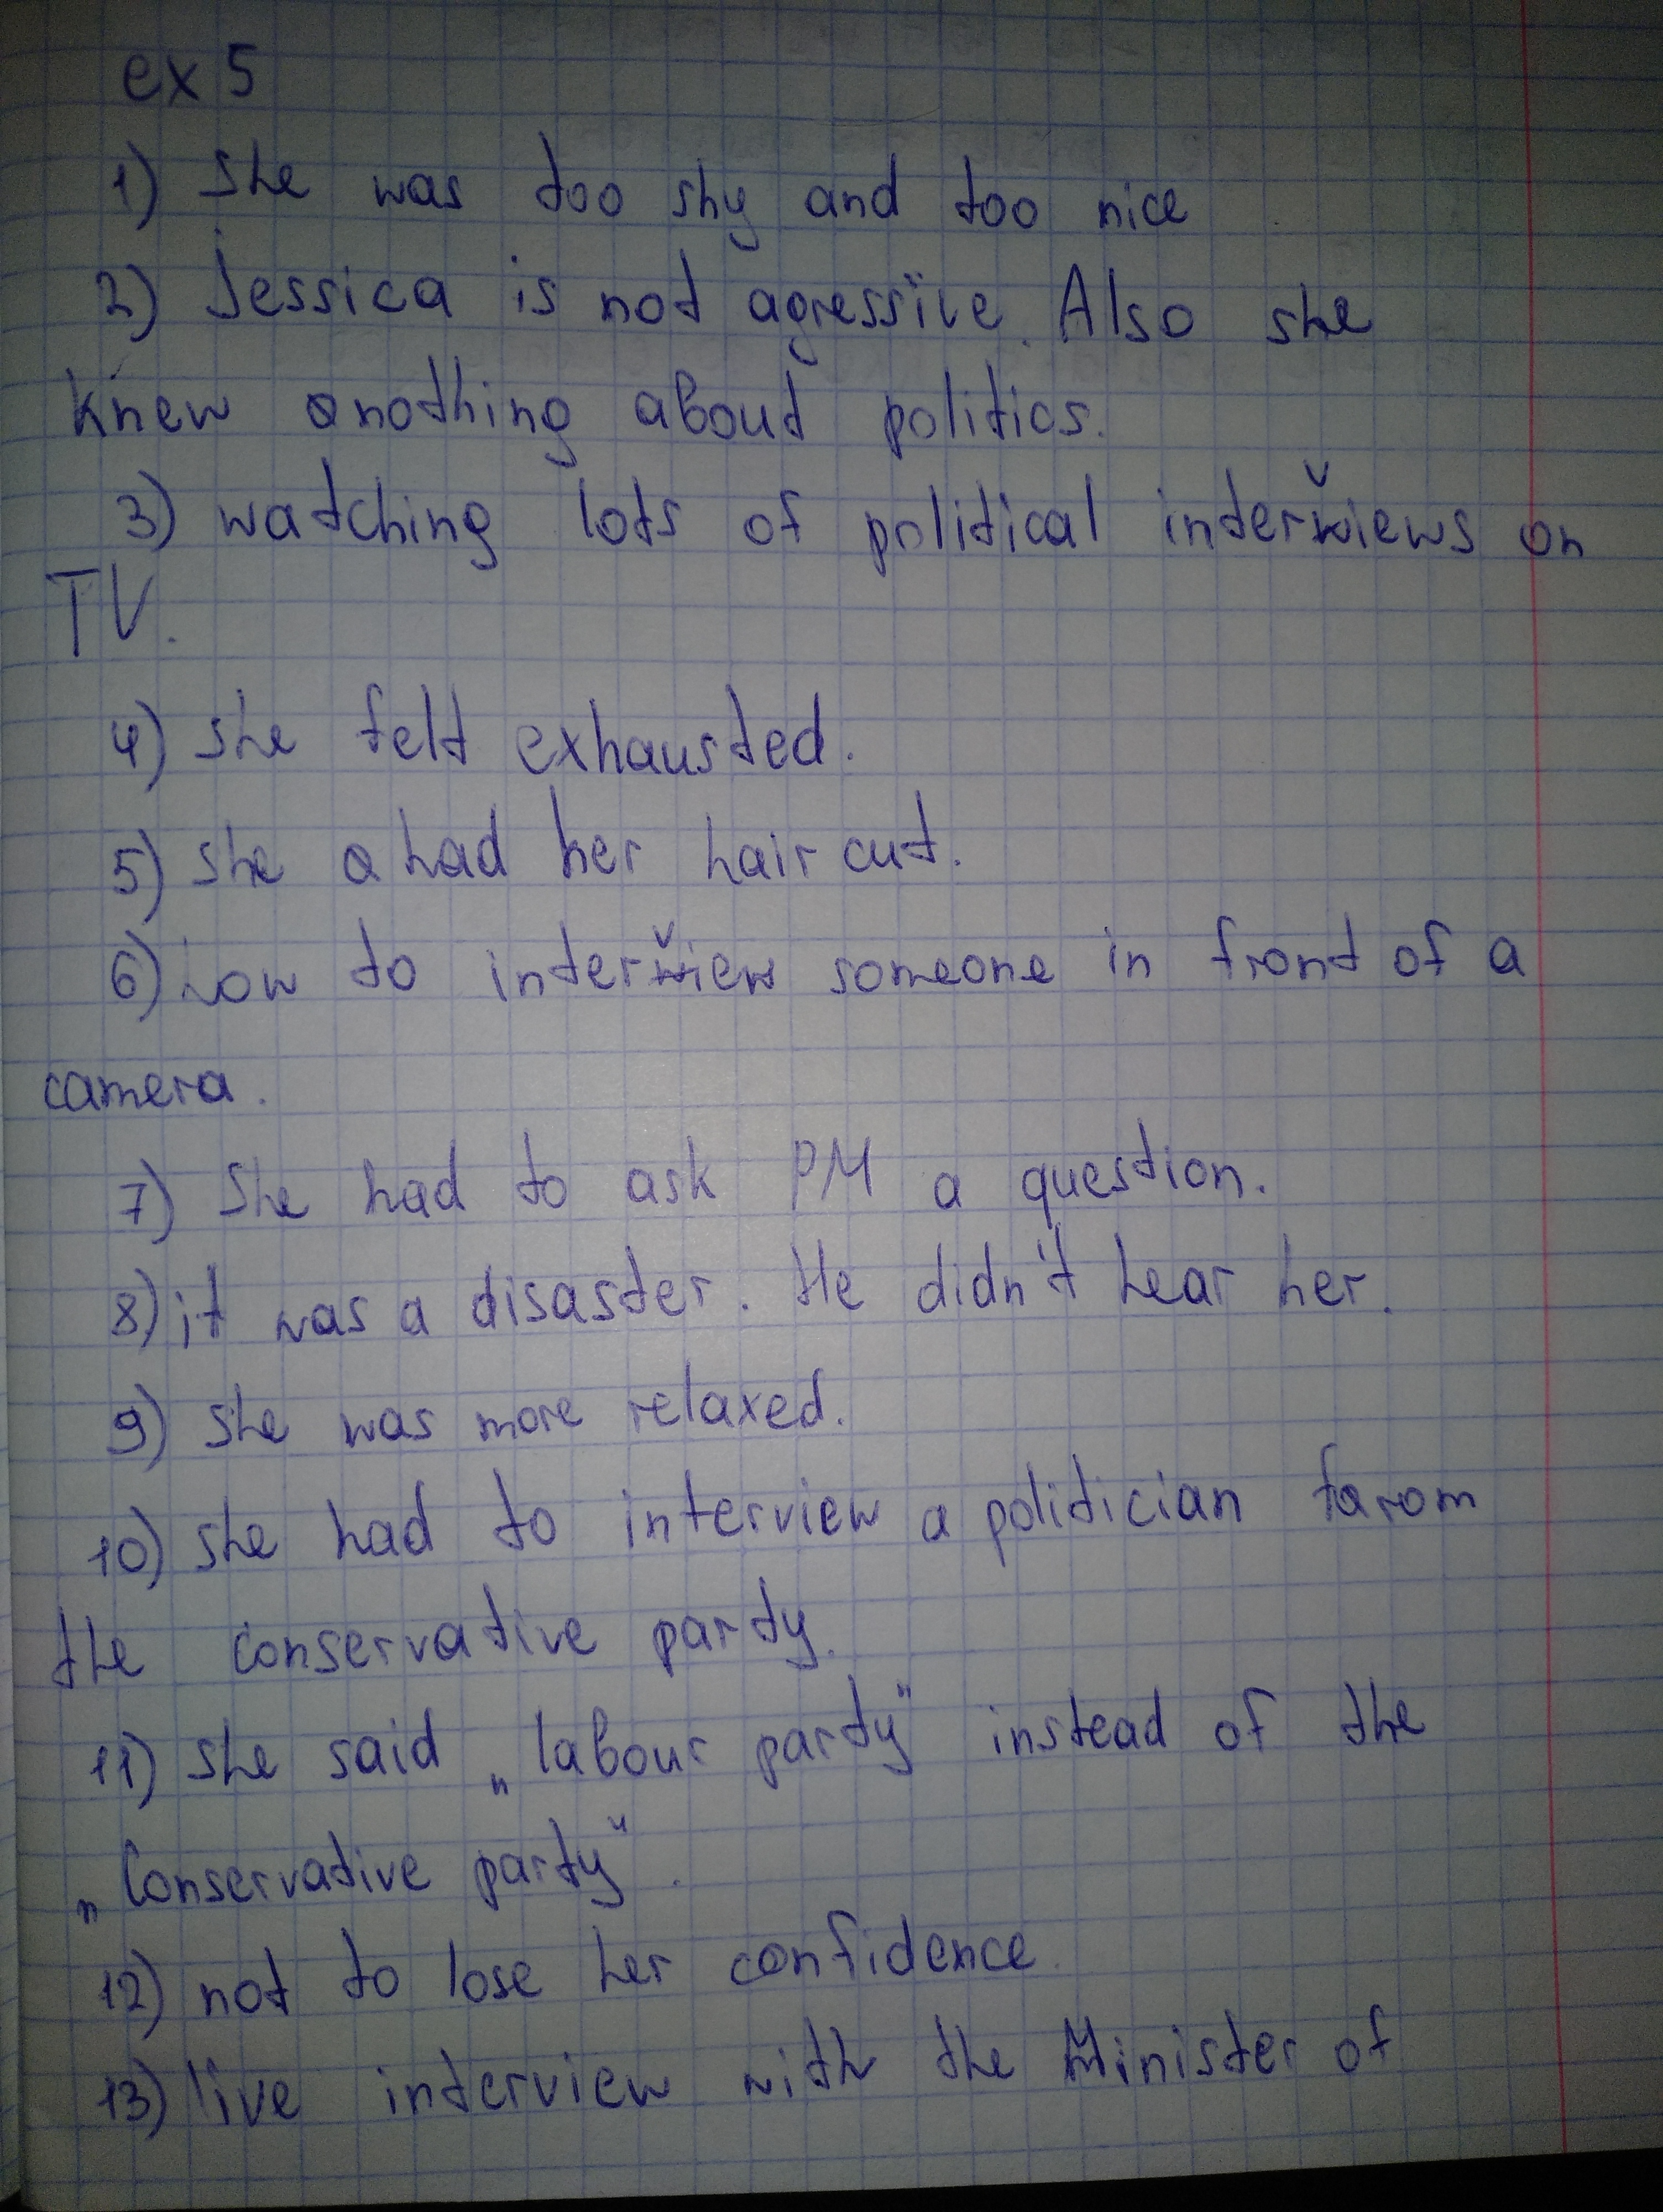 ex 5
1) She was too shy and too nice
2) Jessica is not agressive. Also she
knew nothing about politics.
3) watching lots of political interviews on
TV.
4) she felt exhausted.
5) she had her hair cut.
6) how to interview someone in front of a
camera.
7) She had to ask PM a question.
8) it was a disaster. He didn't hear her.
9) she was more relaxed.
10) she had to interview a politician farom
the conservative party.
11) she said „labour party" instead of the
„Conservative party".
12) not to lose her confidence.
13) live interview with the Minister of